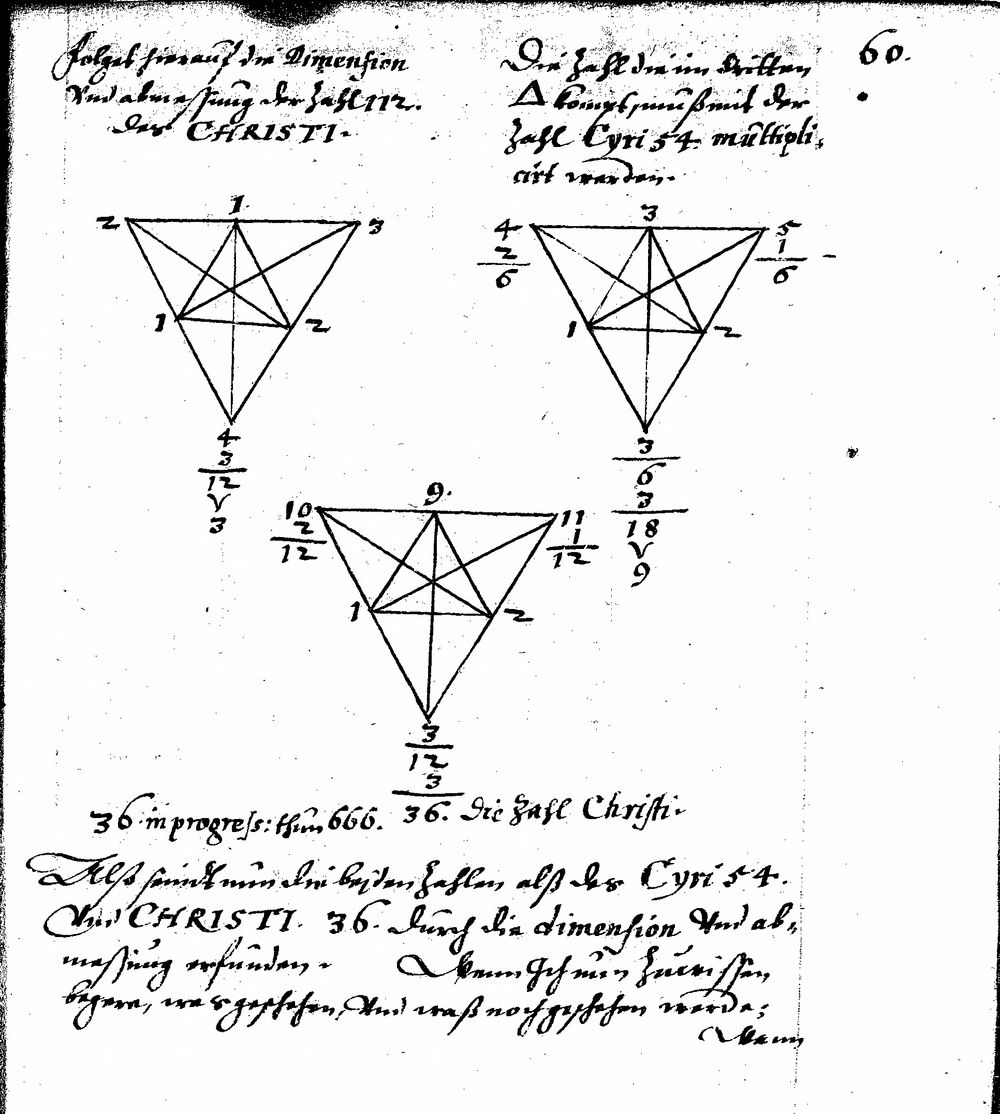 60.
Folget hierauf die Dimension
Und abmessung der Zahl 112.
des CHRISTI.
Die Zahl die im dritten
Δ kompt, muß mit der
Zahl Cyri 54. multipli-
cirt werden.
2 1. 3
1 2
4
3
12
3
4 3 5
2 1
6 6
1 2
3
6
3
18
9
10 9. 11
2 1
12 12
1 2
3
12
3
36 in progress: thun 666. 36. die Zahl Christi.
Alß seindt nun die beyden Zahlen alß des Cyri 54.
Und CHRISTI. 36. durch die dimension Und ab-
messung erfunden. Wenn Ich nun Zu wissen
begere, was geschehen, Und waß noch geschehen werde;
Wenn